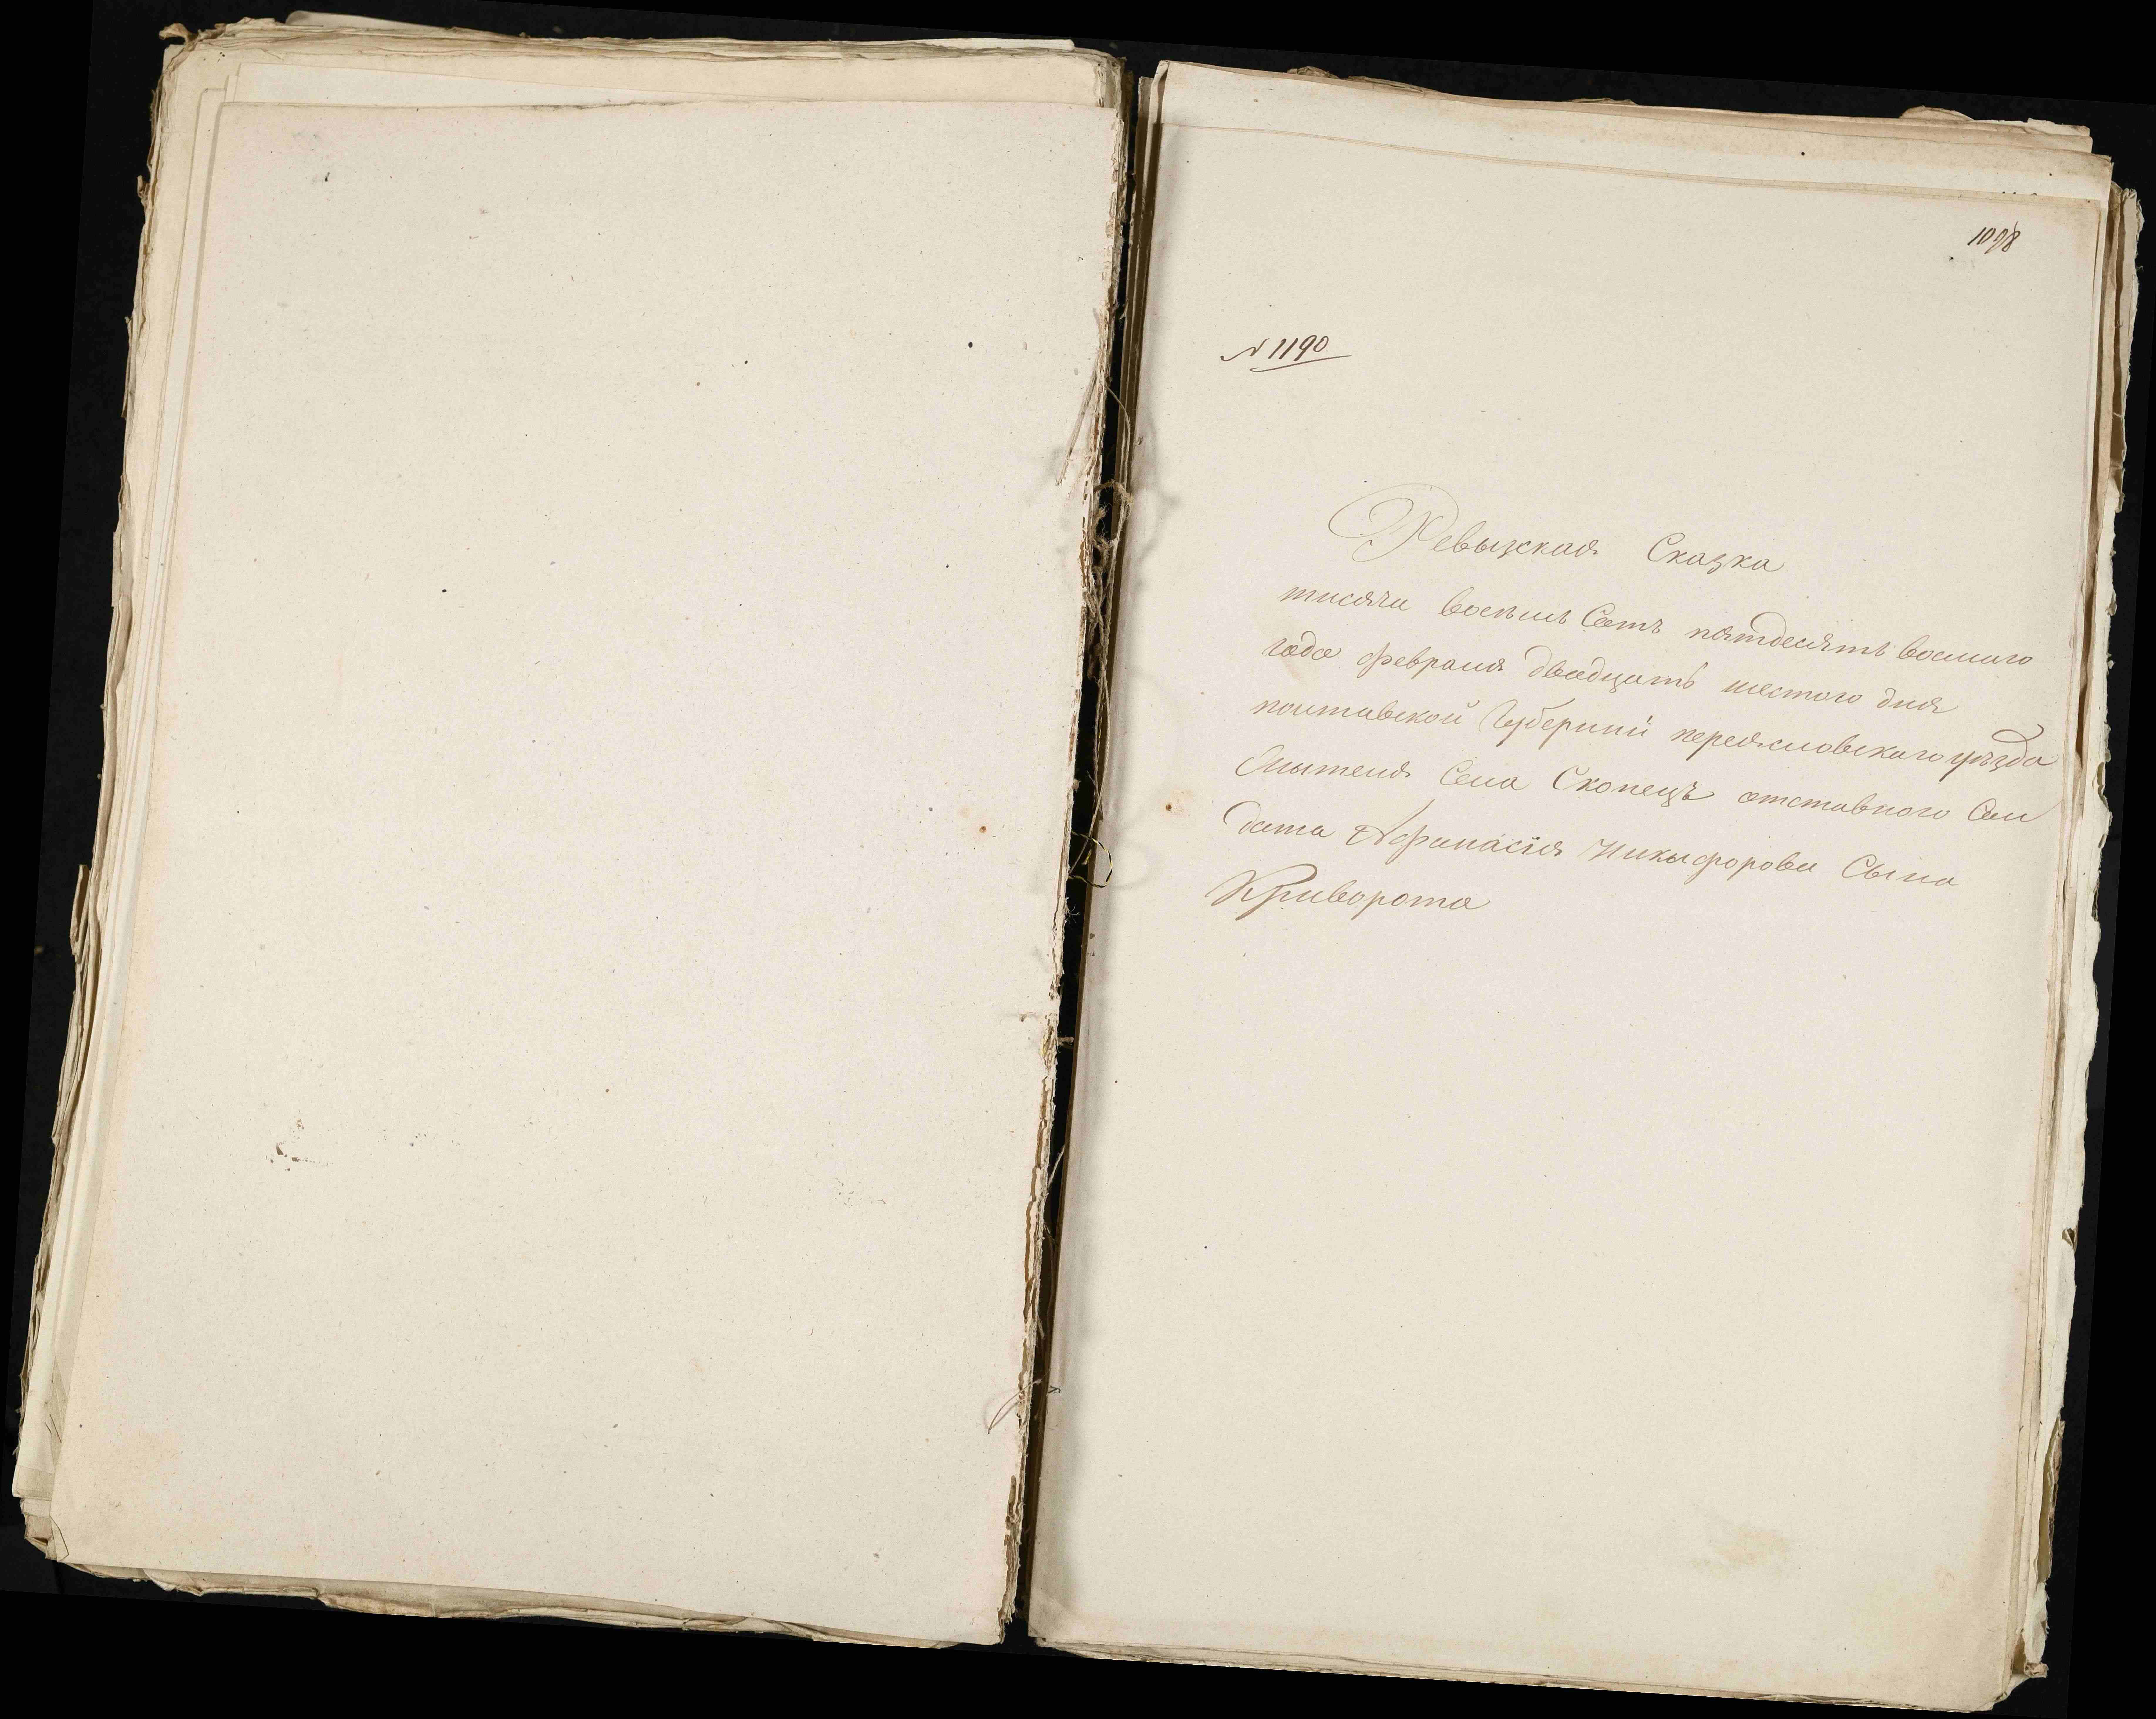 1098
N 1190
Ревызская Сказка
тисяча восемь Сотъ пятдесятъ восмаго
года февраля двадцать шестого дня
полтавской Губерніи переясловскаго уѣзда
Жытеля Села Скопецъ отставного Сол
дата Афанасія Никыфорова Сына
Криворота